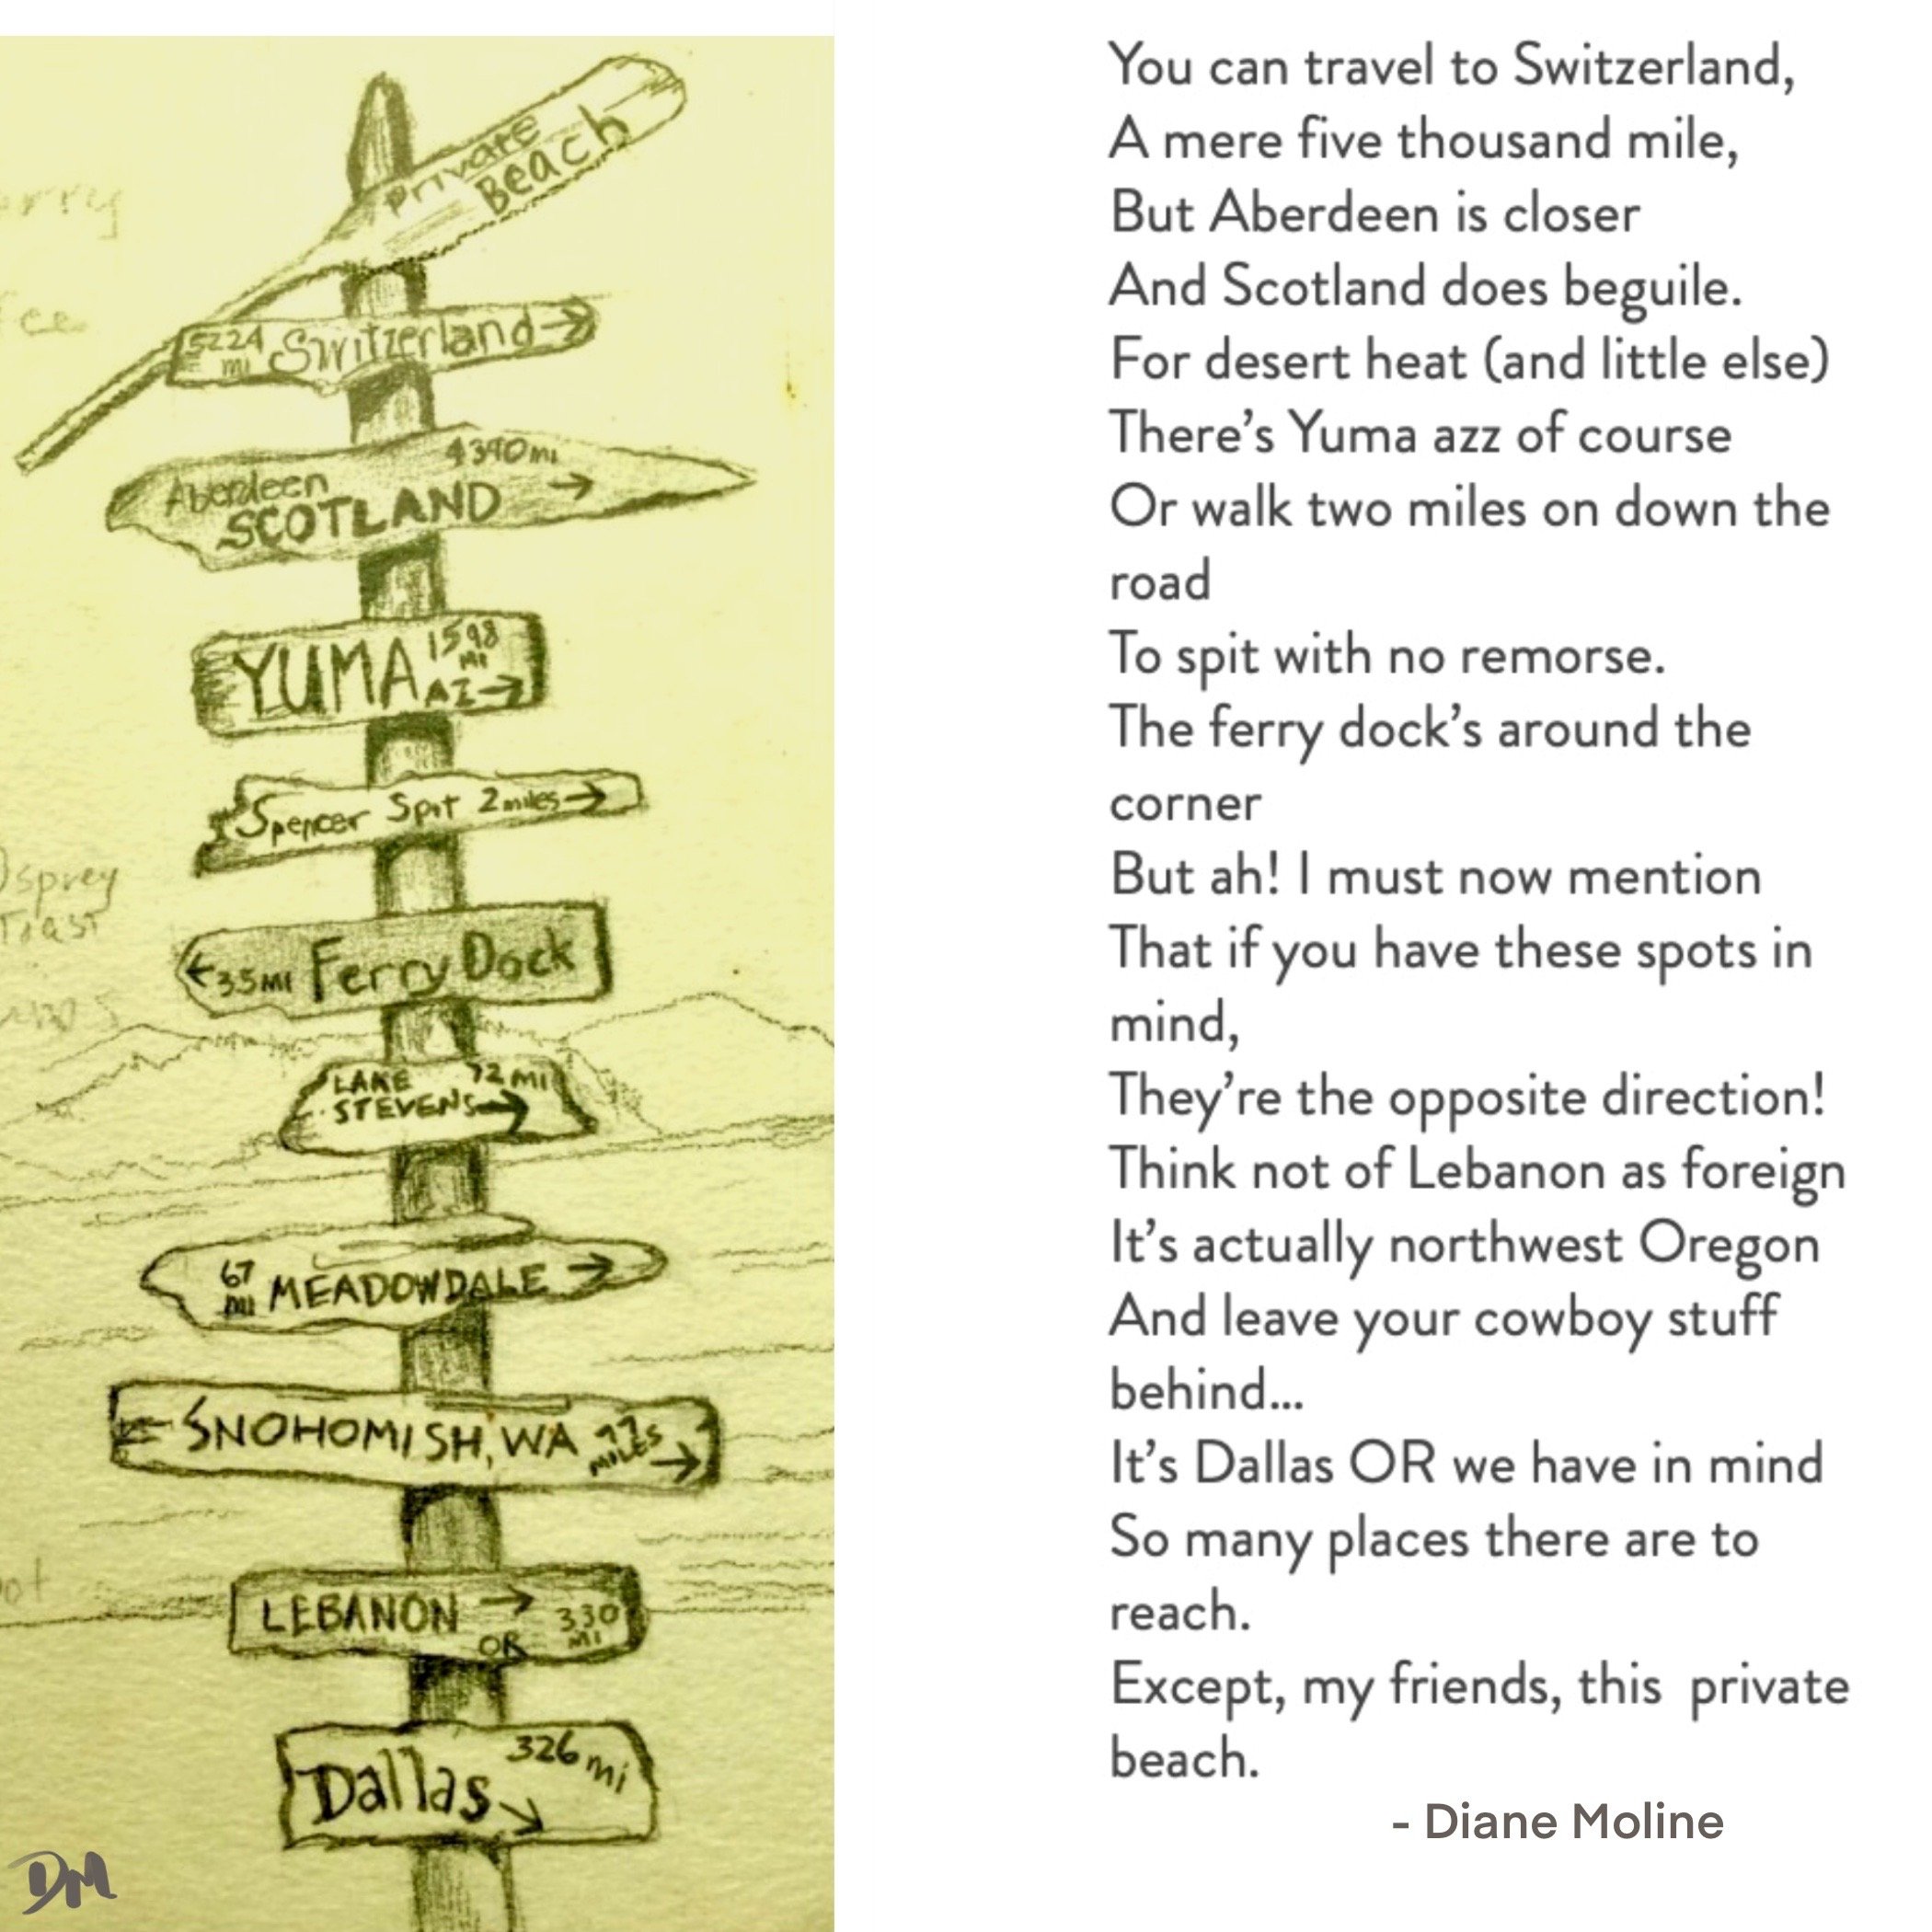 Private
Beach
5224
mi
Switzerland
4390mi
Aberdeen
SCOTLAND
YUMA
1598
MI
AZ
Spencer Spit 2miles
35MI Ferry Dock
LAKE 72 MI
STEVENS
67
mi
MEADOWDALE
SNOHOMISH, WA 77
MILES
LEBANON
OR
330
MI
326 mi
Dallas
Osprey
Toast
DM
You can travel to Switzerland,
A mere five thousand mile,
But Aberdeen is closer
And Scotland does beguile.
For desert heat (and little else)
There's Yuma azz of course
Or walk two miles on down the
road
To spit with no remorse.
The ferry dock's around the
corner
But ah! I must now mention
That if you have these spots in
mind,
They're the opposite direction!
Think not of Lebanon as foreign
It's actually northwest Oregon
And leave your cowboy stuff
behind...
It's Dallas OR we have in mind
So many places there are to
reach.
Except, my friends, this private
beach.
- Diane Moline